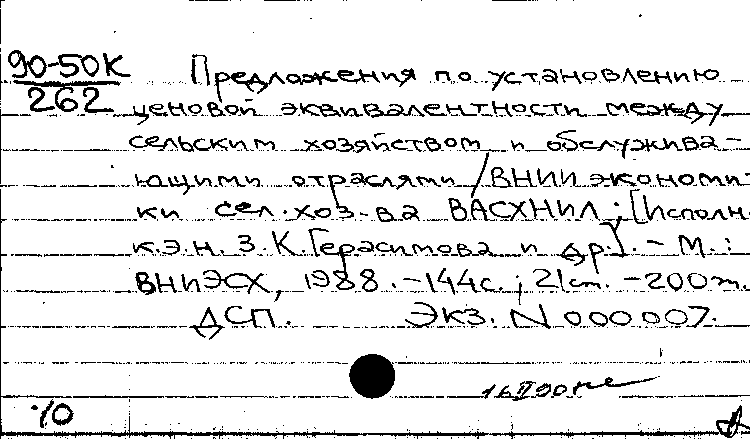 90-50К
262
Предложения по установлению
ценовой эквивалентности между
сельским хозяйством и обслужива-
ющими отраслями / ВНИИ экономи-
ки сел. хоз-ва ВАСХНИЛ; [Исполн.
к.э.н. З.К. Герасимова и др.]. - М.:
ВНИЭСХ, 1988. - 144с.; 21см. - 200т.
ДСП. Экз. N 000007.
16 II 90
10